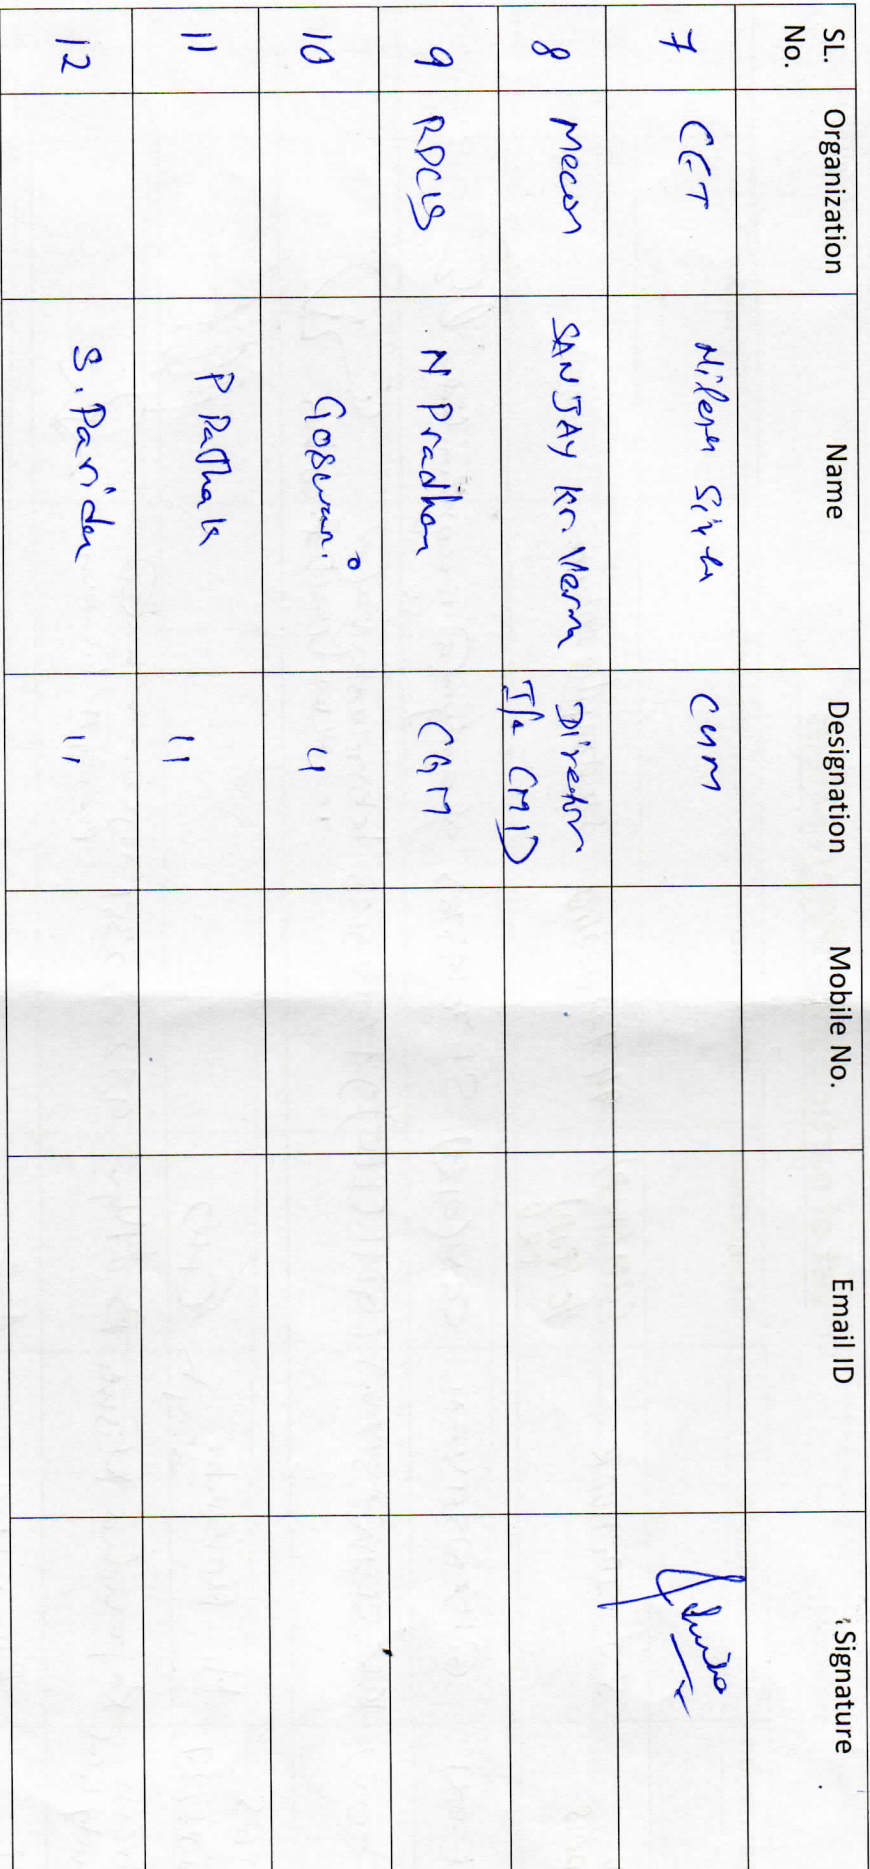 SL. No. Organization Name Designation Mobile No. Email ID Signature
7 CET CGM
8 Mecon SANJAY Kr. Verma Director I/c CMD
9 RDCIS N Pradhan CGM
10 Goswami 11
11 P Pathak 11
12 S. Parida 11